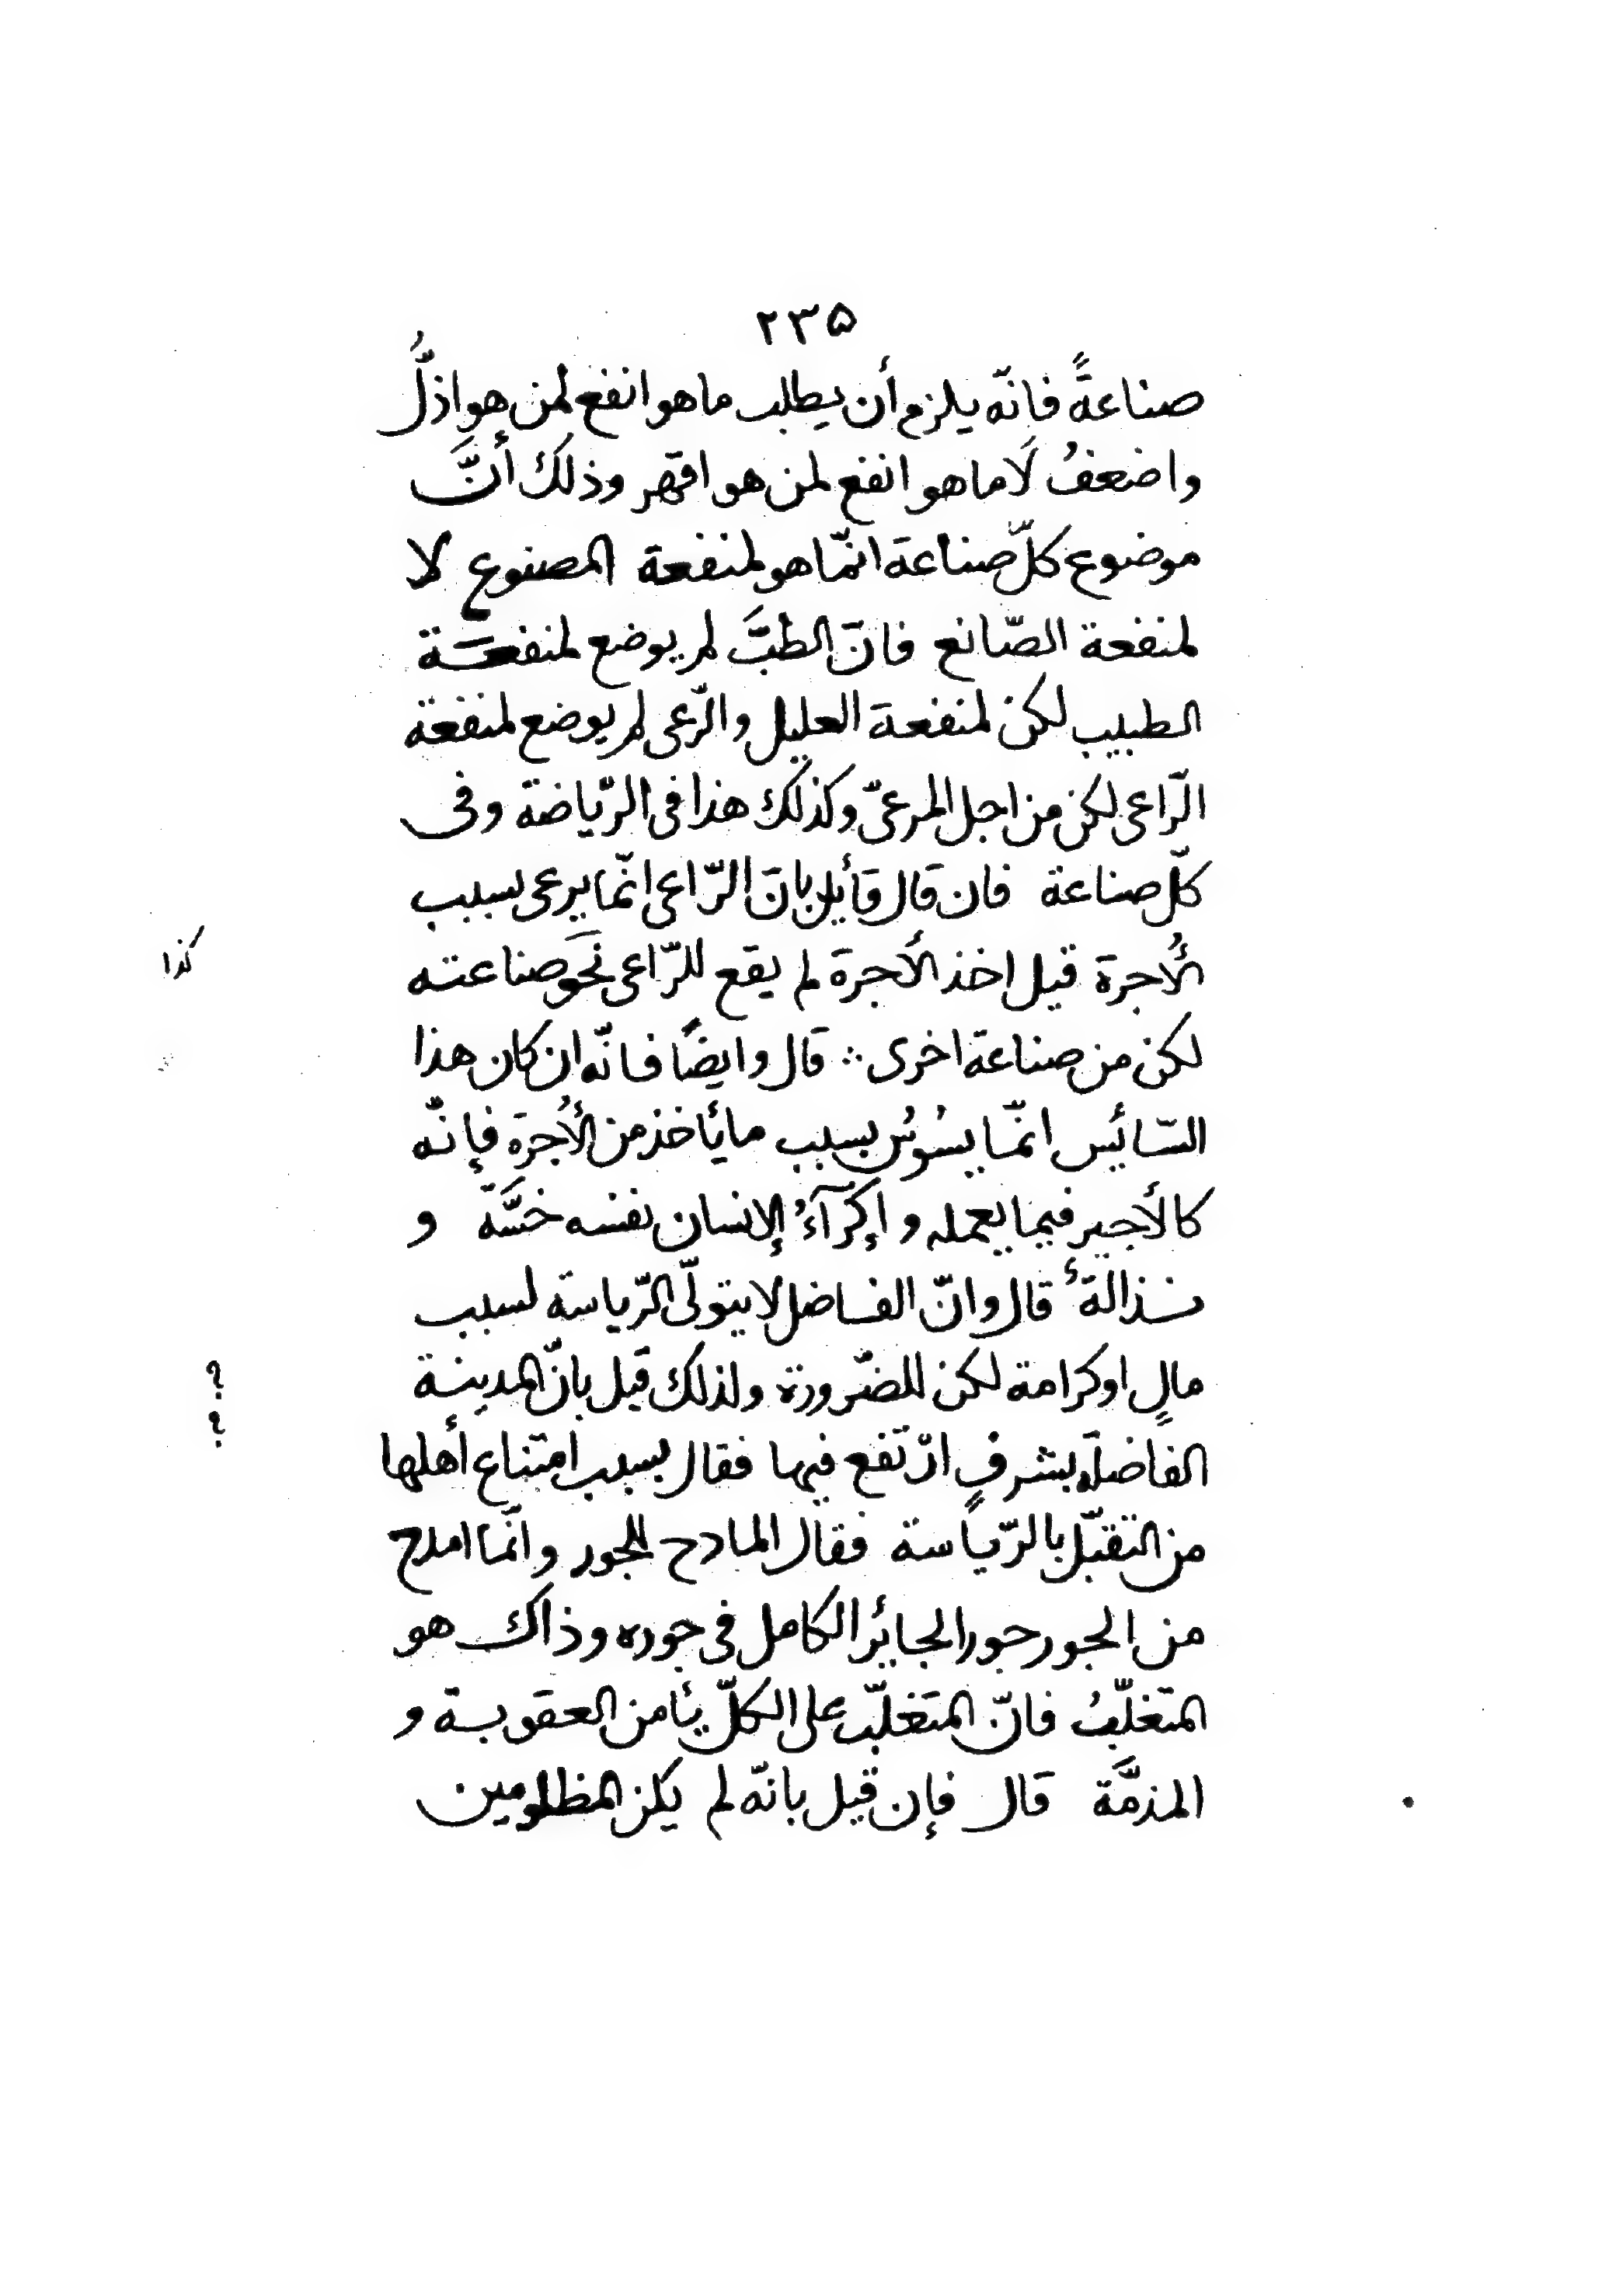 ٢٣۵
صناعةً فانّه يلزم أن يطلب ما هو انفع لمن هو اذلُّ
واضعفُ لَا ما هو انفع لمن هو اقهر وذلك أنَّ
موضوع كلّ صناعة انّما هو لمنفعة المصنوع لا
لمنفعة الصّانع فانّ الطبَّ لم يوضع لمنفعة
الطبيب لكن لمنفعة العليل والرّعى لم يوضع لمنفعة
الرّاعى لكن من اجل المرعىّ وكذلك هذا فى الرّياضة وفى
كلّ صناعة فان قال قأيل بانّ الرّاعى انّما يرعى بسبب
الأُجرة قيل اخذ الأجرة لم يقع للرّاعى نَحوَ صناعته
كذا
لكن من صناعة اخرى ∴ قال وايضًا فانّه ان كان هذا
السّائس انّما يسُوسُ بسبب ما يأخذ من الأُجرة فإنّه
كالأجير فيما يعمله وإكرآءُ الإنسان نفسه خسَّة و
نذالة قال وانّ الفاضل لا يتولّى الرّياسة لسبب
مالٍ او كرامة لكن للضّرورة ولذلك قيل بانّ المدينة
؟
الفاضلة بشرفٍ ارّتفع فيها فقال بسبب امتناع أهلها
؟
من التقبّل بالرّياسة فقال المادح للجور وانّما امدح
من الجور جور الجائر الكامل فى جوره وذاك هو
المتغلّبُ فانّ المتغلّب على الكلّ يأمن العقوبة و
المذمَّة قال فإن قيل بانّه لم يكن المظلومين